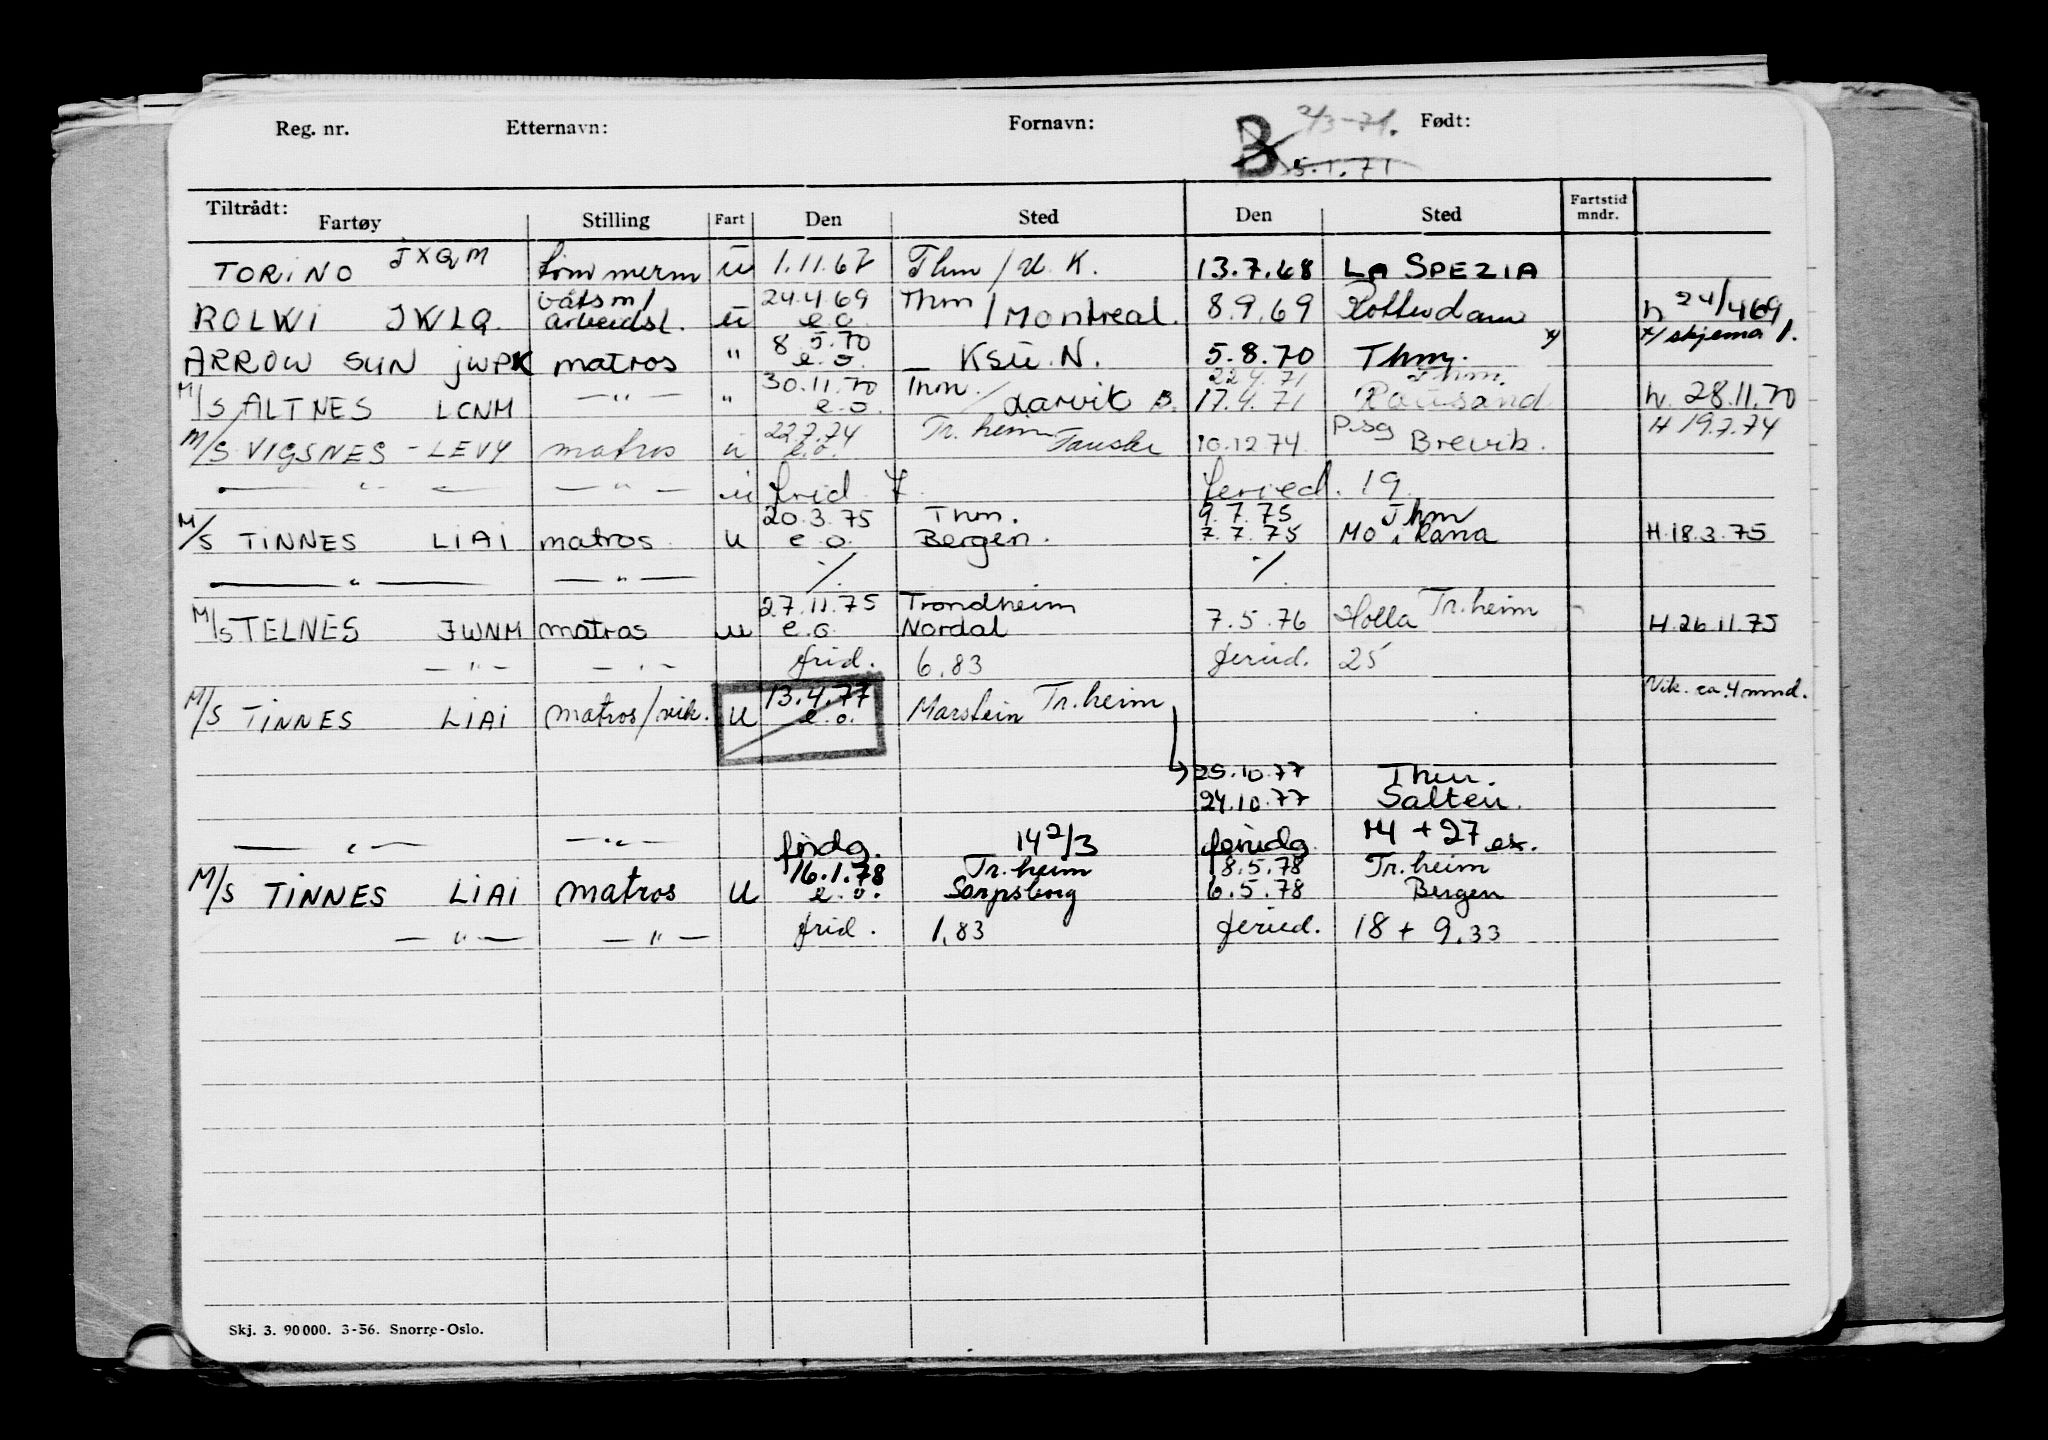 Reg. nr. Etternavn: Fornavn: Født:
2/3-71.
B 5.1.71
Tiltrådt: Fartøy Stilling Fart Den Sted Den Sted Fartstid mndr.
TORINO JXQM tømmerm ū 1.11.67 Thm / U.K. 13.7.68 LA SPEZIA
ROLWI JWLQ. båtsm/ arbeidsl. ū 24.4.69 e.o. Thm / Montreal. 8.9.69 Rotterdam h 24/4 69
ARROW SUN JWPK matros " 8.5.70 e.o. Ksū. N. 5.8.70 Thm. x/ x/ skjema 1.
M/S ALTNES LCNM —"— " 30.11.70 e.o. Thm. / Larvik B. 22.4.71 Thm. 17.4.71 Rausand h. 28.11.70
M/S VIGSNES - LEVY matros u 22.7.74 e.o. Tr.heim Fauske 10.12.74. Psg Brevik. H 19.7.74
—"— —"— u frid 7. feried. 19.
M/S TINNES LIAI matros u 20.3.75 e.o. Thm. Bergen. 9.7.75 Thm 7.7.75 Mo i Rana H.18.3.75
—"— —"— ./. ./.
M/S TELNES JWNM matros u 27.11.75 e.o. Trondheim Nordal 7.5.76 Holla Tr.heim H.26.11.75
—"— —"— frid. 6,83 feried. 25
M/S TINNES LIAI matros/vik. u 13.4.77 e.o. Marstein Tr.heim Vik. ca. 4 mnd.
25.10.77 Thm.
24.10.77 Salten.
—"— —"— fridg. 14 2/3 feriedg. 14 + 27 ex.
M/S TINNES LIAI matros u 16.1.78 e.o. Tr.heim Sarpsborg 8.5.78 Tr.heim 6.5.78 Bergen
—"— —"— frid. 1,83 feried. 18 + 9.33
Skj. 3. 90 000. 3-56. Snorre-Oslo.